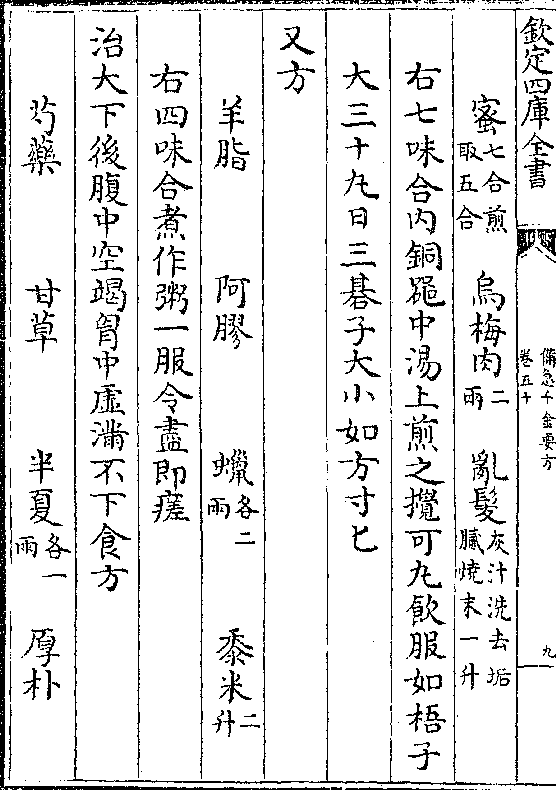 欽定四庫全書
備急千金要方
卷五十
九
蜜七合煎取五合 烏梅肉二兩 亂髮灰汁洗去垢膩燒末一升
右七味合内銅器中湯上煎之攪可丸飲服如梧子
大三十丸日三碁子大小如方寸匕
又方
羊脂 阿膠 蠟各二兩 黍米二升
右四味合煮作粥一服令盡即瘥
治大下後腹中空竭胷中虛滿不下食方
芍藥 甘草 半夏各一兩 厚朴